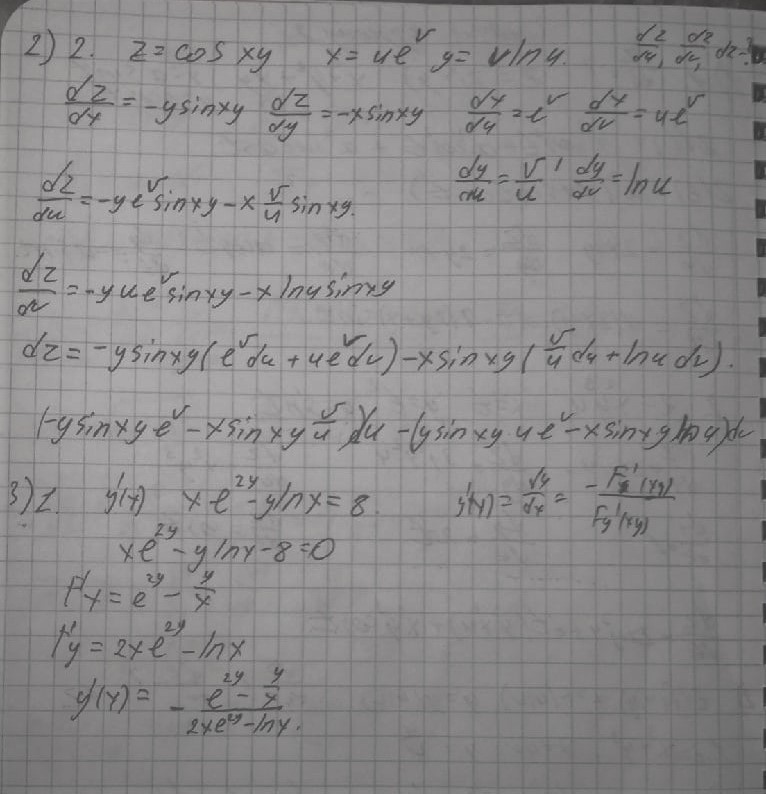 2) 2. z = cos xy x = ue^v y = v ln u. dz/du, dz/dv, dz-?
dz/dx = -y sin xy dz/dy = -x sin xy dx/du = e^v dx/dv = ue^v
dy/du = v/u, dy/dv = ln u
dz/du = -ye^v sin xy - x v/u sin xy.
dz/dv = -yue^v sin xy - x ln u sin xy
dz = -y sin xy (e^v du + ue^v dv) - x sin xy (v/u du + ln u dv).
(-y sin xy e^v - x sin xy v/u) du - (y sin xy ue^v - x sin xy ln u) dv
3) 1. y'(x) xe^2y - y ln x = 8. y'(x) = dy/dx = -F'x(xy)/Fy'(xy)
xe^2y - y ln x - 8 = 0
F'x = e^2y - y/x
F'y = 2xe^2y - ln x
y'(x) = - (e^2y - y/x)/(2xe^2y - ln x).